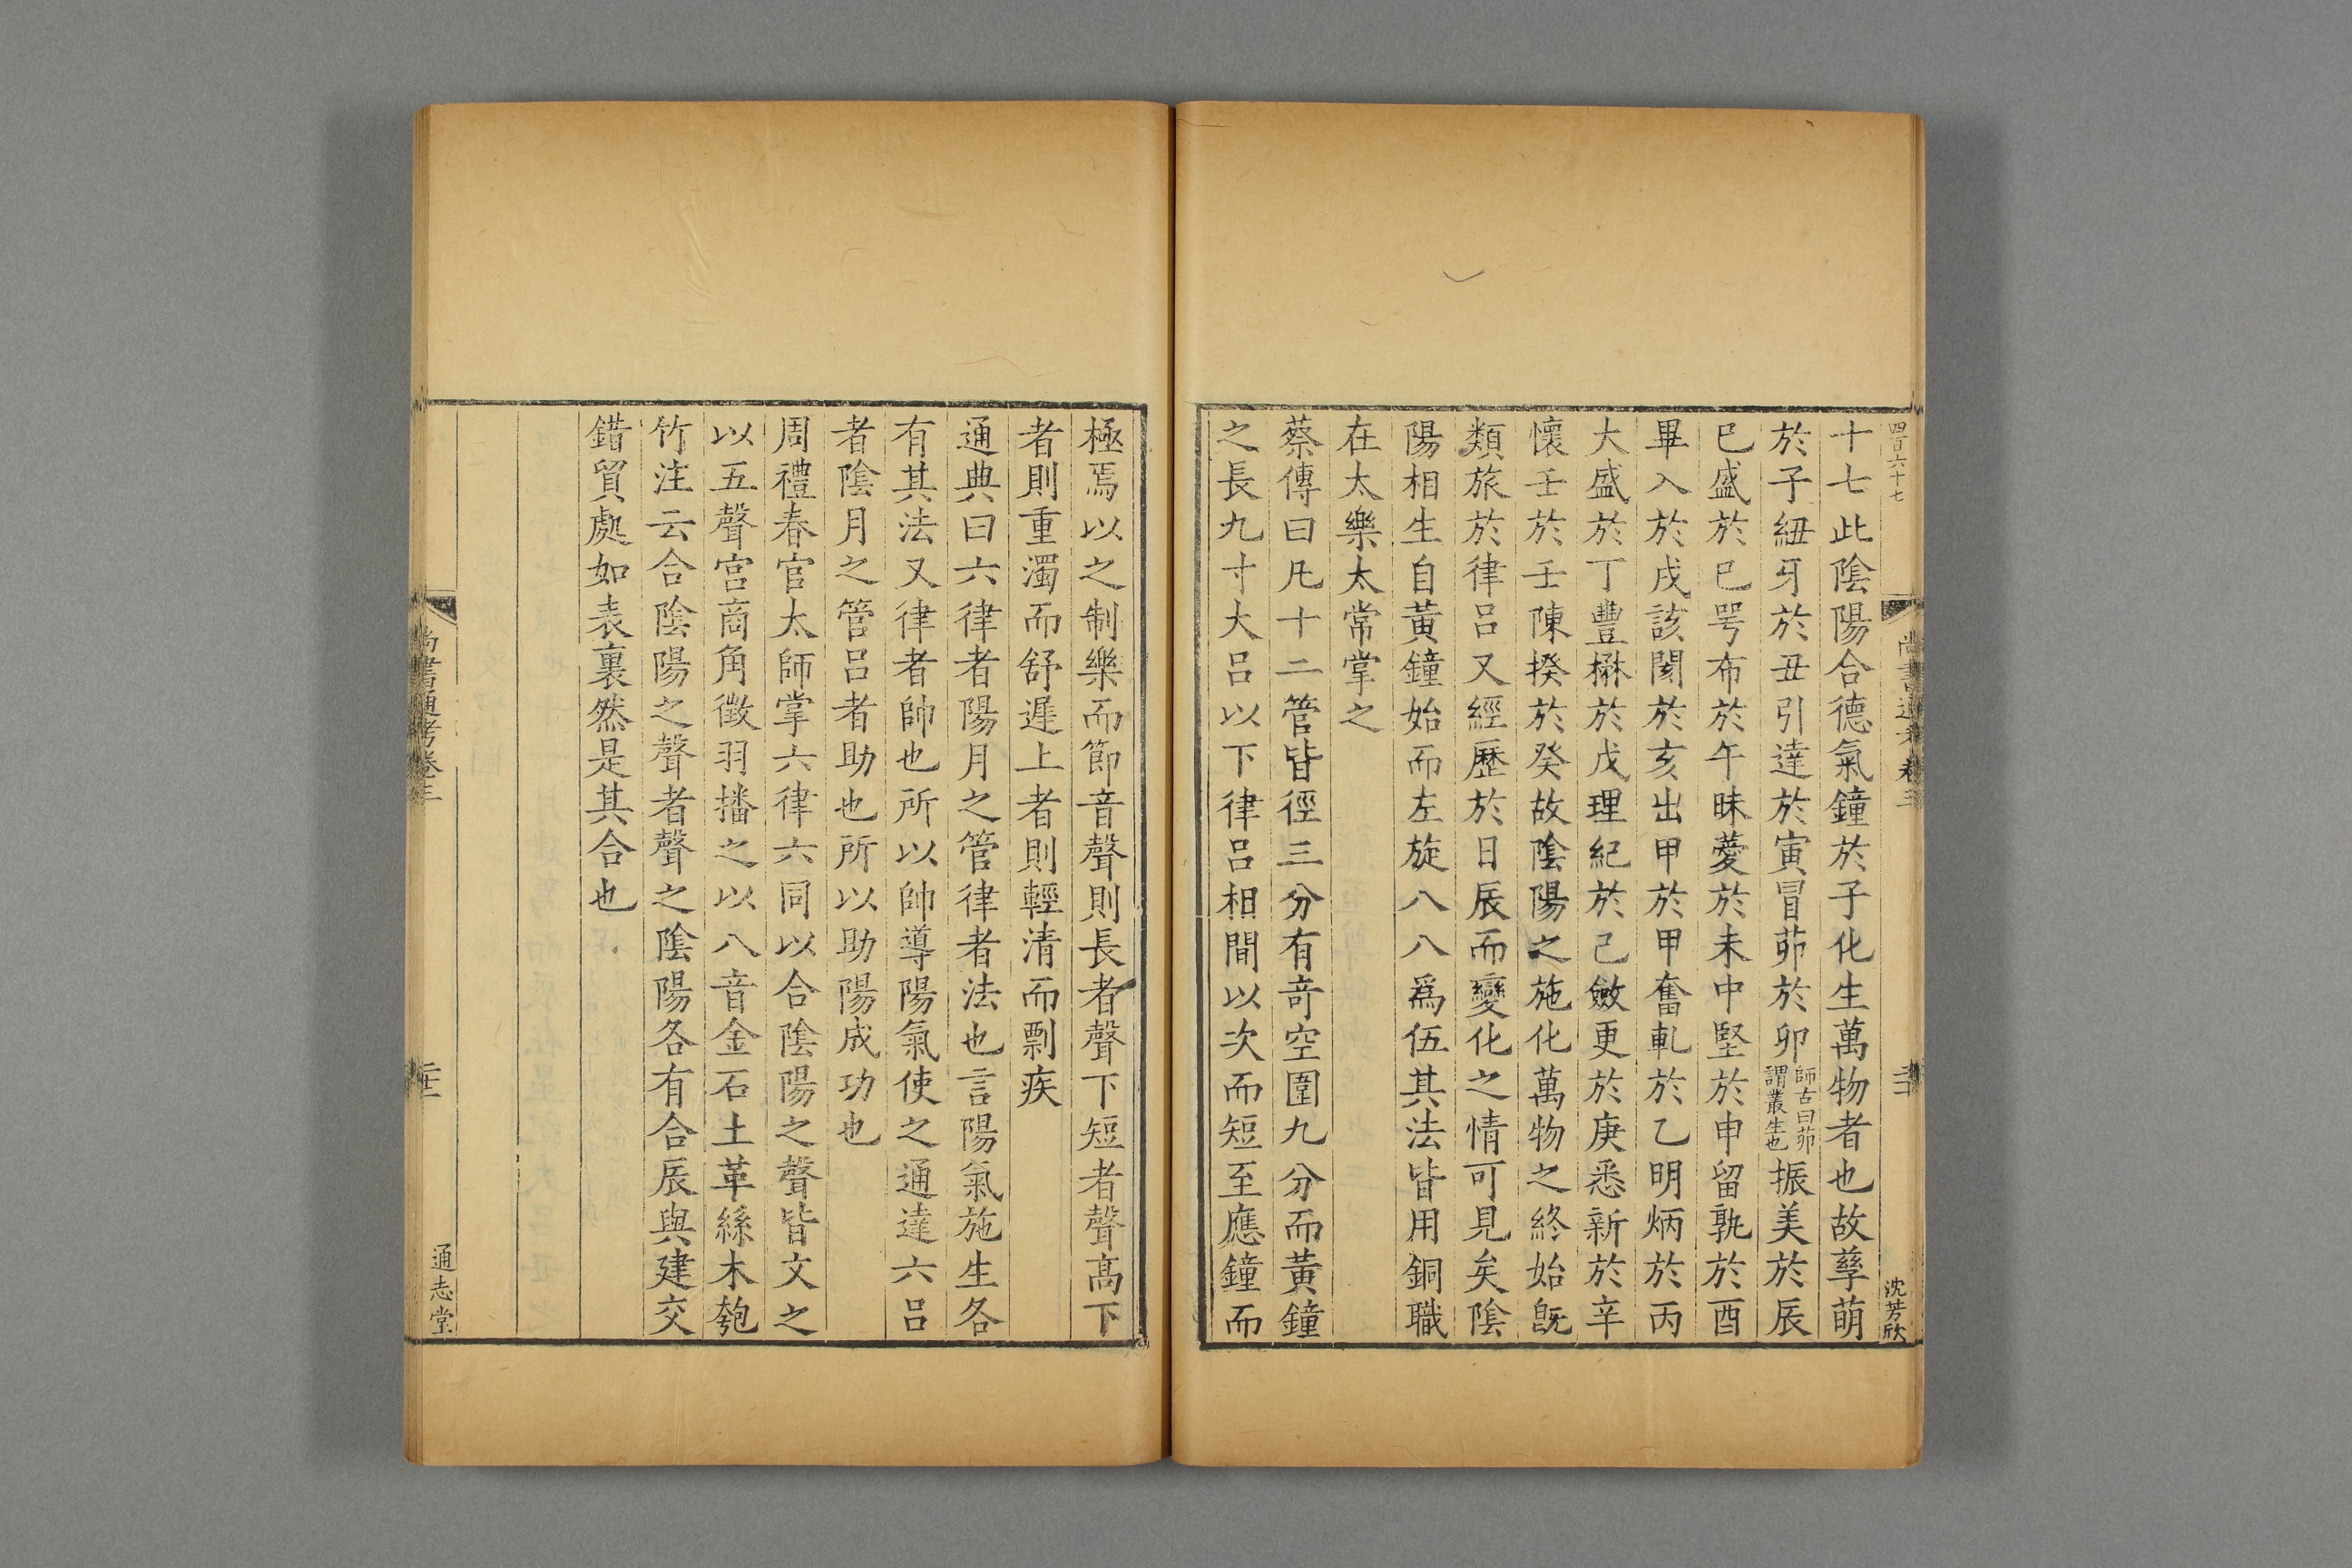 四百六十七
尚書通考卷三
二十
沈芳欣
十七此陰陽合德氣鐘於子化生萬物者也故孳萌
於子紐牙於丑引達於寅冒茆於卯師古曰茆謂叢生也振美於辰
巳盛於巳咢布於午昧薆於未中堅於申留孰於酉
畢入於戌該閡於亥出甲於甲奮軋於乙明炳於丙
大盛於丁豐楙於戊理紀於己斂更於庚悉新於辛
懷壬於壬陳揆於癸故陰陽之施化萬物之終始旣
類旅於律呂又經歷於日辰而變化之情可見矣陰
陽相生自黃鐘始而左旋八八爲伍其法皆用銅職
在太樂太常掌之
蔡傳曰凡十二管皆徑三分有奇空圍九分而黃鐘
之長九寸大呂以下律呂相間以次而短至應鐘而
極焉以之制樂而節音聲則長者聲下短者聲高下
者則重濁而舒遲上者則輕清而剽疾
通典曰六律者陽月之管律者法也言陽氣施生各
有其法又律者帥也所以帥導陽氣使之通達六呂
者陰月之管呂者助也所以助陽成功也
周禮春官太師掌六律六同以合陰陽之聲皆文之
以五聲宮商角徵羽播之以八音金石土革絲木匏
竹注云合陰陽之聲者聲之陰陽各有合辰與建交
錯貿處如表裏然是其合也
尚書通考卷三
二十
通志堂